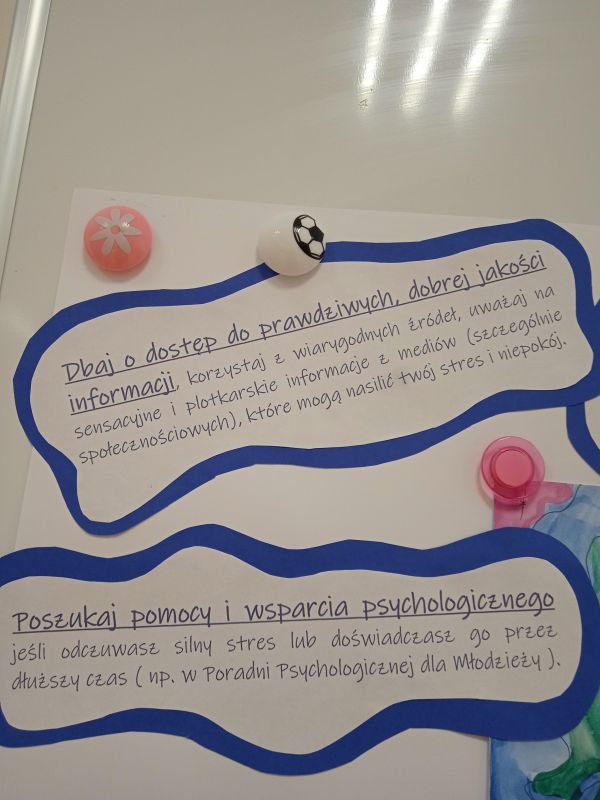 Dbaj o dostęp do prawdziwych, dobrej jakości
informacji, korzystaj z wiarygodnych źródeł, uważaj na
sensacyjne i plotkarskie informacje z mediów (szczególnie
społecznościowych), które mogą nasilić twój stres i niepokój.
Poszukaj pomocy i wsparcia psychologicznego
jeśli odczuwasz silny stres lub doświadczasz go przez
dłuższy czas ( np. w Poradni Psychologicznej dla Młodzieży ).